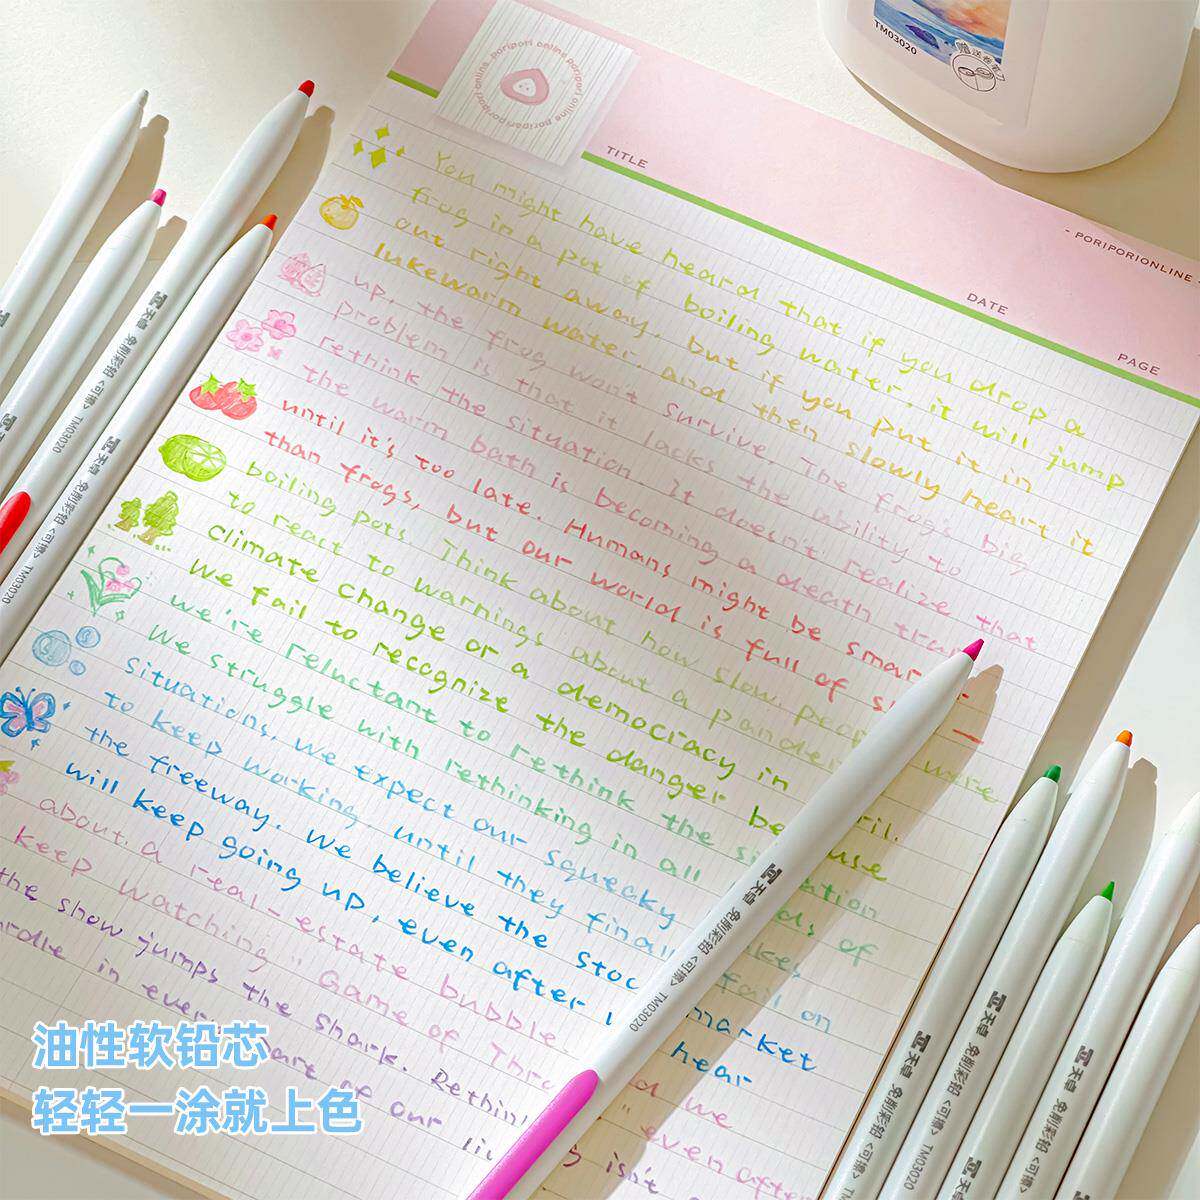 TM03020
赠送卷笔刀
poripori online. poripori online. poripori online.
TITLE
- PORIPORIONLINE -
DATE
PAGE
You might have heard that if you drop a
frog in a pot of boiling water, it will jump
out right away, but if you put it in
lukewarm water, and then slowly heart it
up, the frog won't survive. The frog's big
problem is that it lacks the ability to
rethink the situation. It doesn't realize that
the warm bath is becoming a death
until it's too late. Humans might be
than frogs, but our world is full of
boiling pots. Think about how slow
to react to warnings about a pandemic
were
climate change or a democracy in
We fail to recognize the danger
we're reluctant to rethink the
We struggle with rethinking in all
of
situations. we expect our squeaky
to keep working until they finally
fail on
the freeway. We believe the
market
will keep going up, even after
hear
about a real-estate bubble.
we
keep watching " Game of
" even after
the show jumps the shark.
isn't
in
our
天卓 免削彩铅<可擦> TM03020
天卓 免削彩铅<可擦> TM03020
天卓 免削彩铅<可擦> TM03020
天卓 免削彩铅<可擦> TM03020
天卓 免削彩铅<可擦> TM03020
天卓 免削彩铅<可擦>
油性软铅芯
轻轻一涂就上色